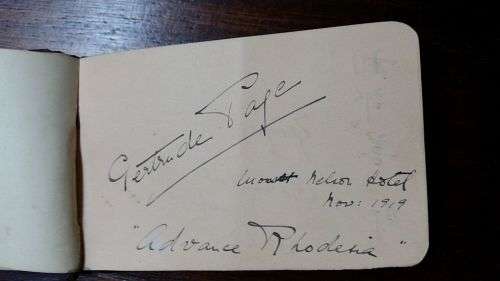 Gertrude Page
Mount Nelson Hotel
Nov: 1919
"Advance Rhodesia"